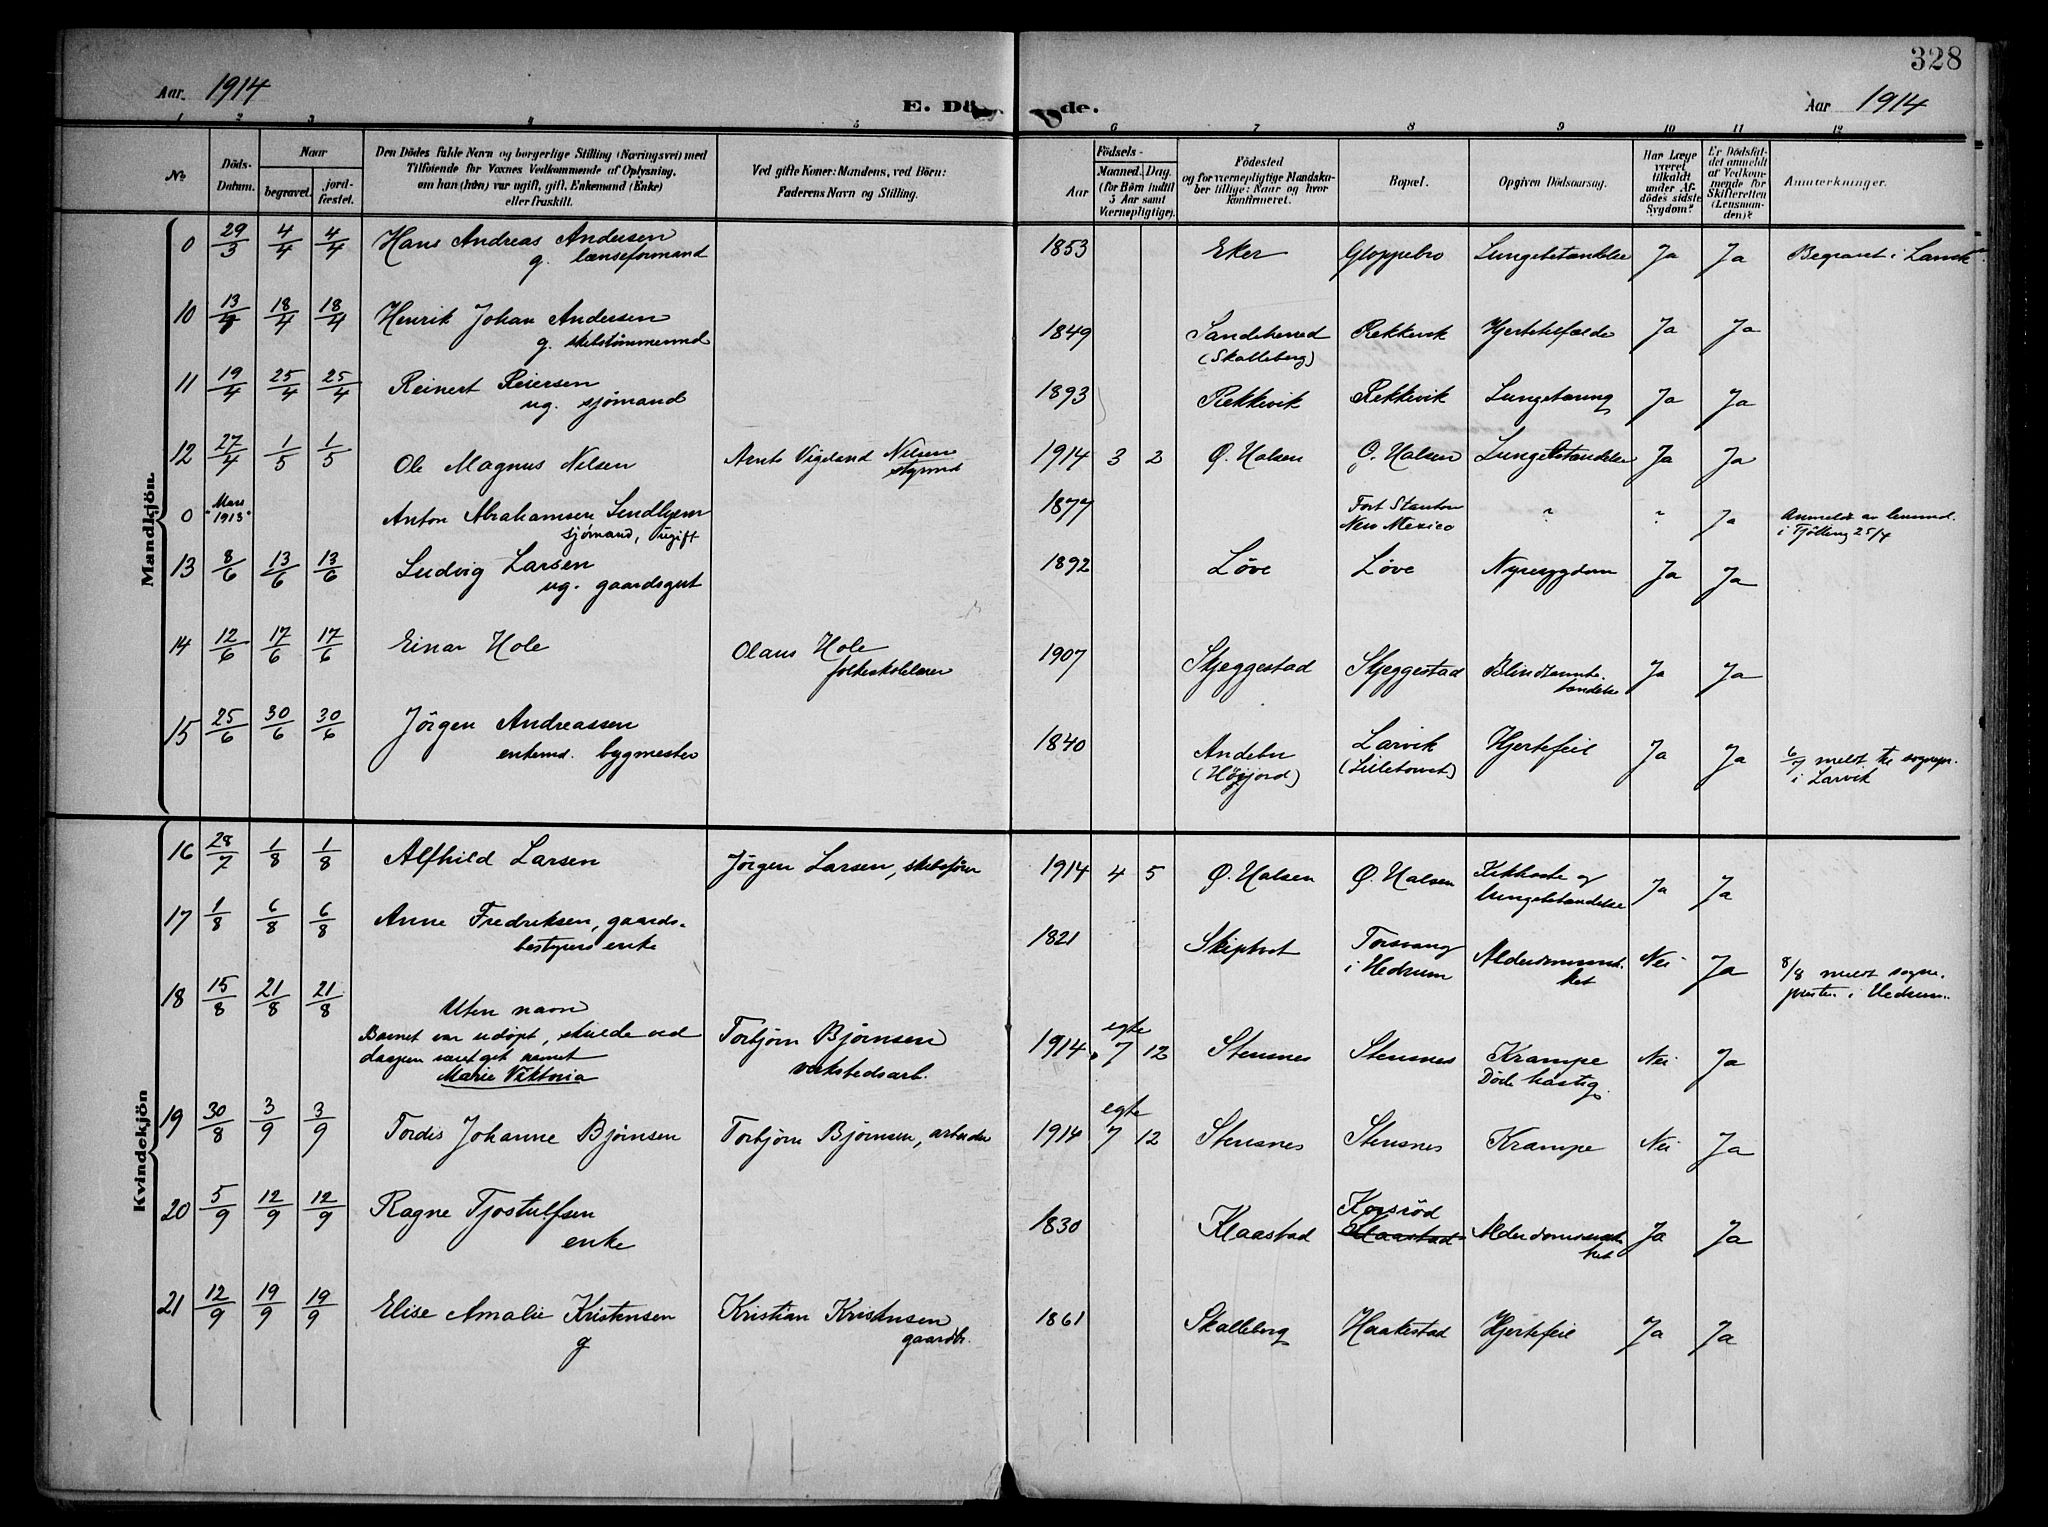 328
Aar 1914
E. Dö de.
Aar 1914
1 2 3 4 5 6 7 8 9 10 11 12
No
Döds-
Datum.
Naar
begravet.
jord-
fæstet.
Den Dödes fulde Navn og borgerlige Stilling (Næringsvei) med
Tilföiende for Voxnes Vedkommende af Oplysning,
om han (hun) var ugift, gift, Enkemand (Enke)
eller fraskilt.
Ved gifte Koner: Mandens, ved Börn:
Faderens Navn og Stilling.
Födsels-
Aar
Maaned. Dag.
(for Börn indtil
5 Aar samt
Værnepligtige).
Födested
og for værnepligtige Mandska-
ber tillige: Naar og hvor
konfirmeret.
Bopæl.
Opgiven Dödsaarsag.
Har Læge
været
tilkaldt
under Af-
dödes sidste
Sygdom?
Er Dödsfal-
det anmeldt
af Vedkom-
mende for
Skifteretten
(Lensman-
den)?
Anmerkninger.
Mandkjön.
0 29/3 4/4 4/4 Hans Andreas Andersen
g. lænseformand
1853 Eker Gloppebro Lungebetændelse Ja Ja Begravet i Larvik
10 13/4 18/4 18/4 Henrik Johan Andersen
g. skibstømmermd
1849 Sandeherred
(Skalleberg)
Rekkevik Hjertetilfælde Ja Ja
11 19/4 25/4 25/4 Reinert Reiersen
ug. sjömand
1893 Rekkevik Rekkevik Lungetæring Ja Ja
12 27/4 1/5 1/5 Ole Magnus Nilsen
Arnts Vigeland Nilsen
styrmd
1914 3 2 Ø. Halsen Ø. Halsen Lungebetændelse Ja Ja
0 "Mars 1913" Anton Abrahamsen Lindhjem
sjømand, ugift
1877 Fort Stanton
New Mexico
" " Ja Anmeldt av lensmd.
i Tjölling 25/4
13 8/6 13/6 13/6 Ludvig Larsen
ug. gaardsgut
1892 Løve Løve Nyresygdom Ja Ja
14 12/6 17/6 17/6 Einar Hole
Olaus Hole
folkeskolelærer
1907 Skjeggestad Skjeggestad Blindtarmbe-
tændelse
Ja Ja
15 25/6 30/6 30/6 Jörgen Andreassen
enkemd. bygmester
1840 Andebu
(Höijord)
Larvik
(Lilletorvet)
Hjertefeil Ja Ja 6/7 meldt til sognepr.
i Larvik
Kvindekjön
16 28/7 1/8 1/8 Alfhild Larsen
Jörgen Larsen, skibsfører
1914 4 5 Ø. Halsen Ø. Halsen Kikhoste og
lungebetændelse
Ja Ja
17 1/8 6/8 6/8 Anne Fredriksen, gaards-
bestyrers enke
1821 Skiptvet Torsvang
i Hedrum
Alderdomssvak-
het
Nei Ja 8/8 meldt sogne-
presten i Hedrum.
18 15/8 21/8 21/8 Uten navn
Barnet var udøpt, skulde ved
daapen været git navnet
Marie Viktoria
Torbjørn Bjørnsen
verkstedsarb.
1914 egte
7 12 Stensnes Stensnes Krampe
Døde hastig
Nei Ja
19 30/8 3/9 3/9 Tordis Johanne Bjørnsen
Torbjørn Bjørnsen, arbeider
1914 egte
7 12 Stensnes Stensnes Krampe Nei Ja
20 5/9 12/9 12/9 Ragne Tjostulfsen
enke
1830 Klaastad Korsröd
Klaastad
Alderdomssvak-
het
Ja Ja
21 12/9 19/9 19/9 Elise Amalie Kristensen
g
Kristian Kristensen
gaardbr.
1861 Skalleberg Haakestad Hjertefeil Ja Ja